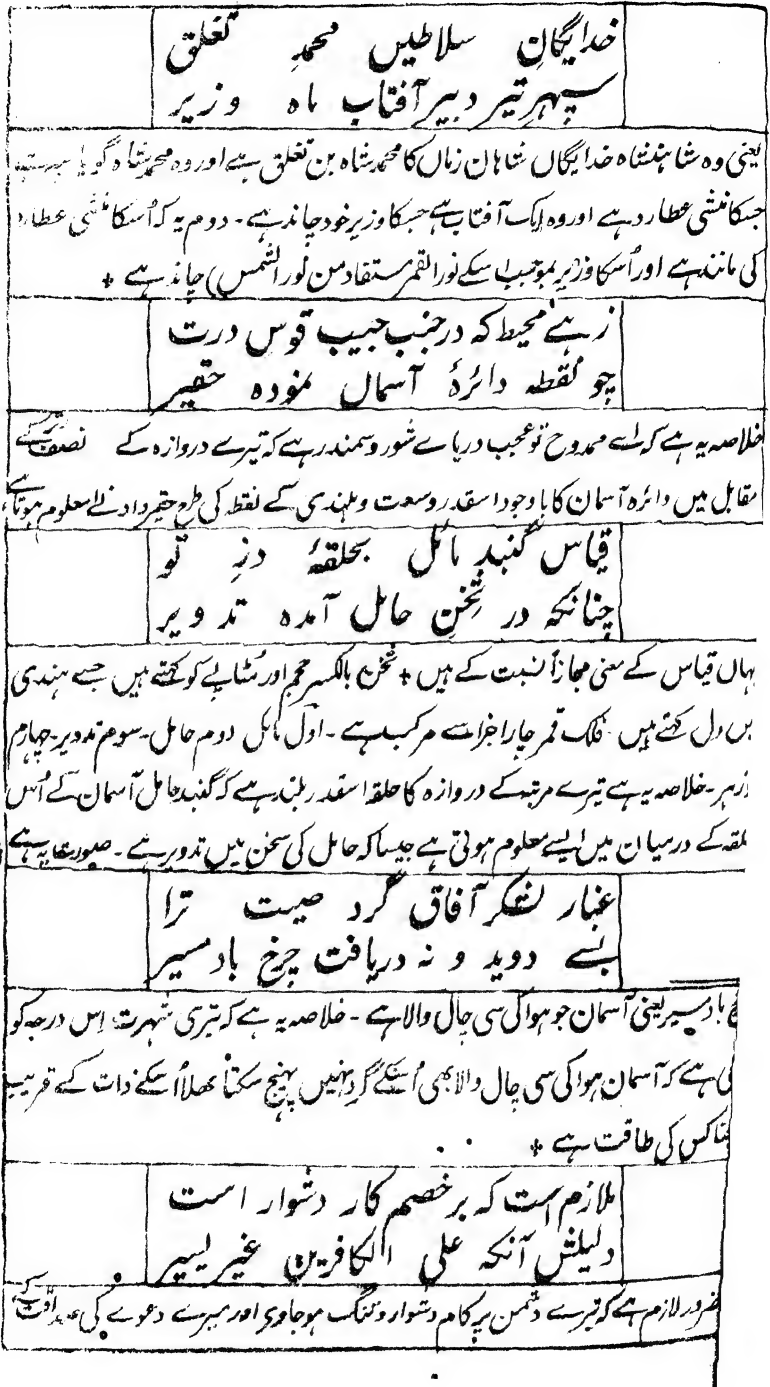 خدایگانِ سلاطیں محمدِ تغلق
سپہر تیر دبیر آفتاب ماہ وزیر
یعنی وہ شاہنشاہ خدایگاں شاہان زماں کا محمد شاہ بن تغلق ہے اور وہ محمد شاہ گویا
جسکا منشی عطارد ہے اور وہ ایک آفتاب ہے جسکا وزیر خود چاند ہے۔ دوم یہ کہ اُسکا منشی عطارد
کی مانند ہے اور اُسکا وزیر بموجب اسکے نور القمر مستفاد من نور الشمس) چاند ہے +
زہے محیط کہ در جنب جیب قوس درت
چو نقطہ دائرۂ آسماں نمودہ حقیر
خلاصہ یہ ہے کہ اے ممدوح تو عجب دریاے شور و سمندر ہے کہ تیرے دروازہ کے نصف
مقابل میں دائرہ آسمان کا باوجود اسقدر وسعت و بلندی کے نقطہ کی طرح حقیر و ادنےٰ معلوم ہوتا ہے
قیاس گنبد مائل بحلقۂ درِ تو
چنانکہ در ثخنِ حامل آمدہ تدویر
یہاں قیاس کے معنی مجازاً نسبت کے ہیں + ثخن بالکسر حجم اور مٹاپے کو کہتے ہیں جسے ہندی
میں دل کہتے ہیں۔ فلک قمر چار اجزا سے مرکب ہے۔ اول مائل دوم حامل۔ سوم تدویر۔ چہارم
خلاصہ یہ ہے تیرے مرتبہ کے دروازہ کا حلقہ اسقدر بلند ہے کہ گنبد حامل آسمان کے اُس
حلقہ کے درمیان میں ایسے معلوم ہوتی ہے جیسا کہ حامل کی سخن میں تدویر ہے۔ صورت یہ ہے
غبار لشکر آفاق گرد صیت ترا
بسے دوید و نہ دریافت چرخ باد مسیر
باد مسیر یعنی آسمان جو ہوا کی سی چال والا ہے۔ خلاصہ یہ ہے کہ تیری شہرت اس درجہ کو
ہے کہ آسمان ہوا کی سی چال والا بھی اُسکے گرد نہیں پہنچ سکتا بھلا اُسکے ذات کے قریب
کس کی طاقت ہے +
ملازم است کہ بر خصم کار دشوار است
دلیلش آنکہ علی الکافرین غیر یسیر
ضرور لازم ہے کہ تیرے دشمن پر کام دشوار و تنگ ہو جاوی اور میرے دعوے کی